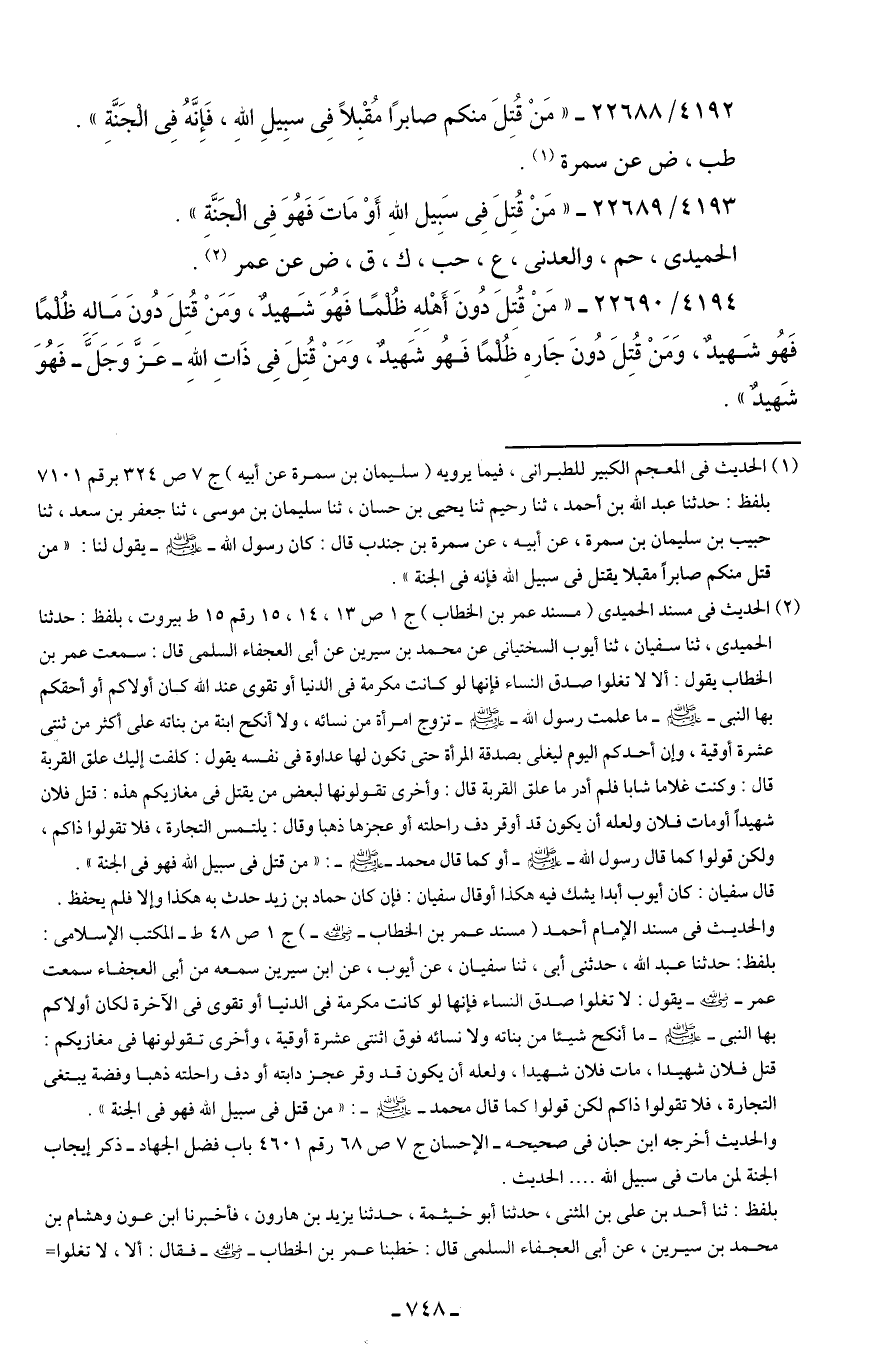 ٢٢٦٨٨/٤١٩٢ ـ « مَنْ قُتِلَ منكم صابرًا مُقْبِلاً فِى سبيلِ اللهِ ، فَإِنَّهُ فِى الْجَنَّةِ » .
طب ، ض عن سمرة (١) .
٢٢٦٨٩/٤١٩٣ ـ « مَنْ قُتِلَ فِى سَبِيلِ اللهِ أَوْ مَاتَ فَهُوَ فِى الْجَنَّةِ » .
الحميدى ، حم ، والعدنى ، ع ، حب ، ك ، ق ، ض عن عمر (٢) .
٢٢٦٩٠/٤١٩٤ ـ « مَنْ قُتِلَ دُونَ أَهْلِهِ ظُلْمًا فَهُوَ شَهِيدٌ ، وَمَنْ قُتِلَ دُونَ مَالِهِ ظُلْمًا
فَهُو شَهِيدٌ ، وَمَنْ قُتِلَ دُونَ جَارِهِ ظُلْمًا فَهُو شَهِيدٌ ، وَمَنْ قُتِلَ فِى ذَاتِ اللهِ ـ عَزَّ وَجَلَّ ـ فَهُوَ
شَهِيدٌ » .
(١) الحديث فى المعجم الكبير للطبرانى ، فيما يرويه ( سليمان بن سمرة عن أبيه ) ج ٧ ص ٣٢٤ برقم ٧١٠١
بلفظ : حدثنا عبد الله بن أحمد ، ثنا رحيم ثنا يحيى بن حسان ، ثنا سليمان بن موسى ، ثنا جعفر بن سعد ، ثنا
حبيب بن سليمان بن سمرة ، عن أبيه ، عن سمرة بن جندب قال : كان رسول الله ـ ﷺ ـ يقول لنا : « من
قتل منكم صابراً مقبلا يقتل فى سبيل الله فإنه فى الجنة » .
(٢) الحديث فى مسند الحميدى ( مسند عمر بن الخطاب ) ج ١ ص ١٣ ، ١٤ ، ١٥ رقم ١٥ ط بيروت ، بلفظ : حدثنا
الحميدى ، ثنا سفيان ، ثنا أيوب السختيانى عن محمد بن سيرين عن أبى العجفاء السلمى قال : سمعت عمر بن
الخطاب يقول : ألا لا تغلوا صدق النساء فإنها لو كانت مكرمة فى الدنيا أو تقوى عند الله كان أولاكم أو أحقكم
بها النبى ـ ﷺ ـ ما علمت رسول الله ـ ﷺ ـ تزوج امرأة من نسائه ، ولا أنكح ابنة من بناته على أكثر من ثنتى
عشرة أوقية ، وإن أحدكم اليوم ليغلى بصدقة المرأة حتى تكون لها عداوة فى نفسه يقول : كلفت إليك علق القربة
قال : وكنت غلاما شابا فلم أدر ما علق القربة قال : وأخرى تقولونها لبعض من يقتل فى مغازيكم هذه : قتل فلان
شهيداً أومات فلان ولعله أن يكون قد أوقر دف راحلته أو عجزها ذهبا وقال : يلتمس التجارة ، فلا تقولوا ذاكم ،
ولكن قولوا كما قال رسول الله ـ ﷺ ـ أو كما قال محمد ـ ﷺ ـ : « من قتل فى سبيل الله فهو فى الجنة » .
قال سفيان : كان أيوب أبدا يشك فيه هكذا أوقال سفيان : فإن كان حماد بن زيد حدث به هكذا وإلا فلم يحفظ .
والحديث فى مسند الإمام أحمد ( مسند عمر بن الخطاب ـ رضي الله عنه ـ ) ج ١ ص ٤٨ ط ـ المكتب الإسلامى :
بلفظ : حدثنا عبد الله ، حدثنى أبى ، ثنا سفيان ، عن أيوب ، عن ابن سيرين سمعه من أبى العجفاء سمعت
عمر ـ رضي الله عنه ـ يقول : لا تغلوا صدق النساء فإنها لو كانت مكرمة فى الدنيا أو تقوى فى الآخرة لكان أولاكم
بها النبى ـ ﷺ ـ ما أنكح شيئا من بناته ولا نسائه فوق اثنتى عشرة أوقية ، وأخرى تقولونها فى مغازيكم :
قتل فلان شهيدا ، مات فلان شهيدا ، ولعله أن يكون قد وقر عجز دابته أو دف راحلته ذهبا وفضة يبتغى
التجارة ، فلا تقولوا ذاكم لكن قولوا كما قال محمد ـ ﷺ ـ : « من قتل فى سبيل الله فهو فى الجنة » .
والحديث أخرجه ابن حبان فى صحيحه ـ الإحسان ج ٧ ص ٦٨ رقم ٤٦٠١ باب فضل الجهاد ـ ذكر إيجاب
الجنة لمن مات فى سبيل الله .... الحديث .
بلفظ : ثنا أحد بن على بن المثنى ، حدثنا أبو خيثمة ، حدثنا يزيد بن هارون ، فأخبرنا ابن عون وهشام بن
محمد بن سيرين ، عن أبى العجفاء السلمى قال : خطبنا عمر بن الخطاب ـ رضي الله عنه ـ فقال : ألا ، لا تغلوا=
ـ ٧٤٨ ـ